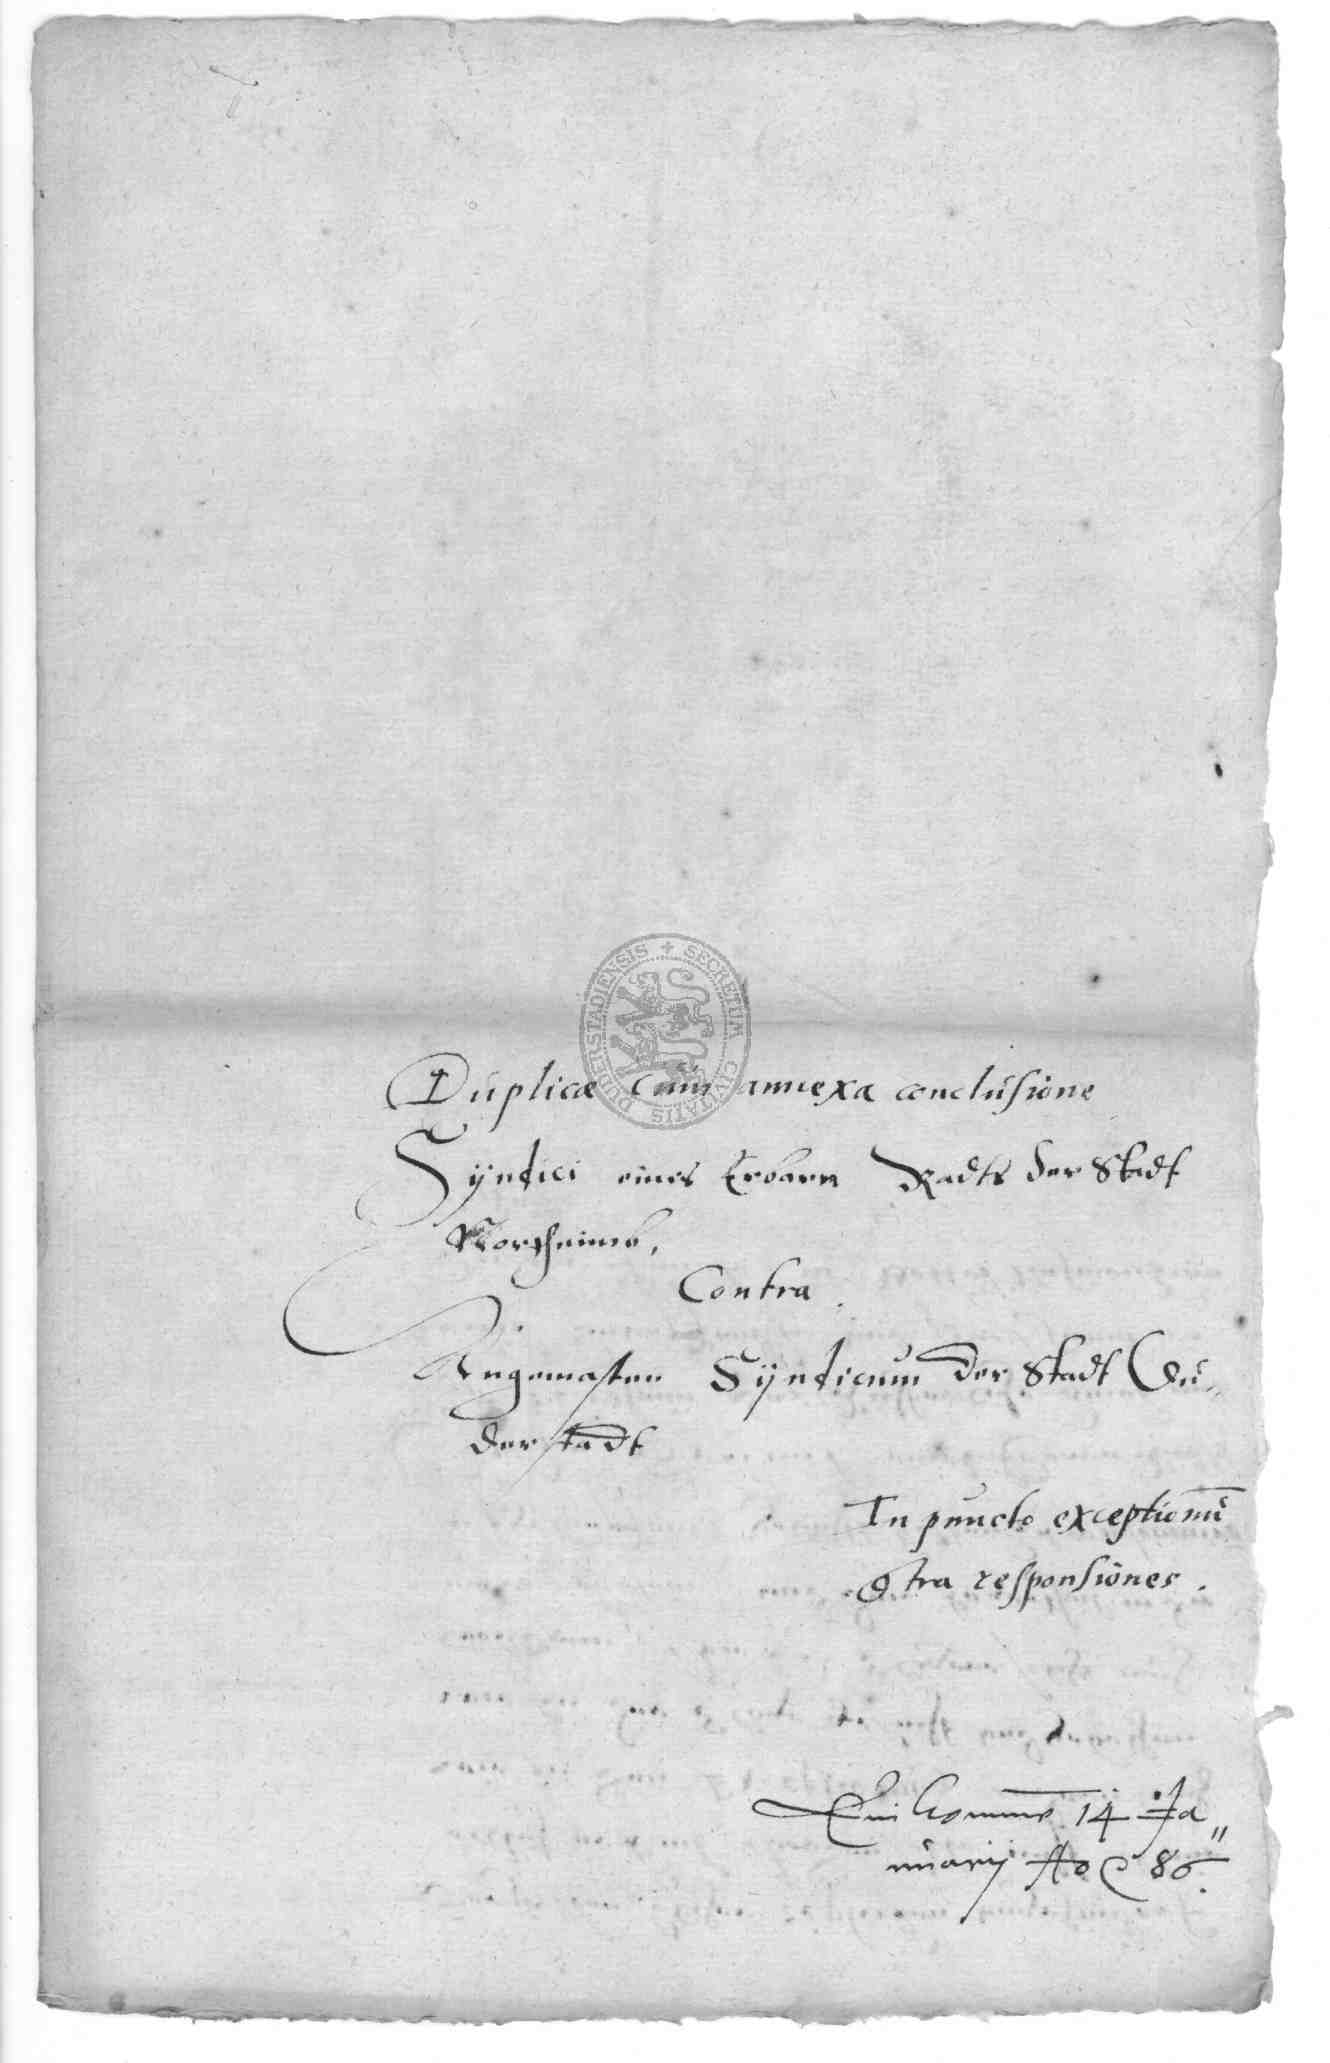 SECRETUM CIVITATIS DUDERSTADIENSIS
Duplicæ cum annexa conclusione
Syndici eines Erbarn Radts der Stadt
Northeimb,
Contra
Angemasten Syndicum der Stadt Du„
derstadt
In puncto exceptionū
9tra responsiones.
14 Ja„
nuarij Ao 86.